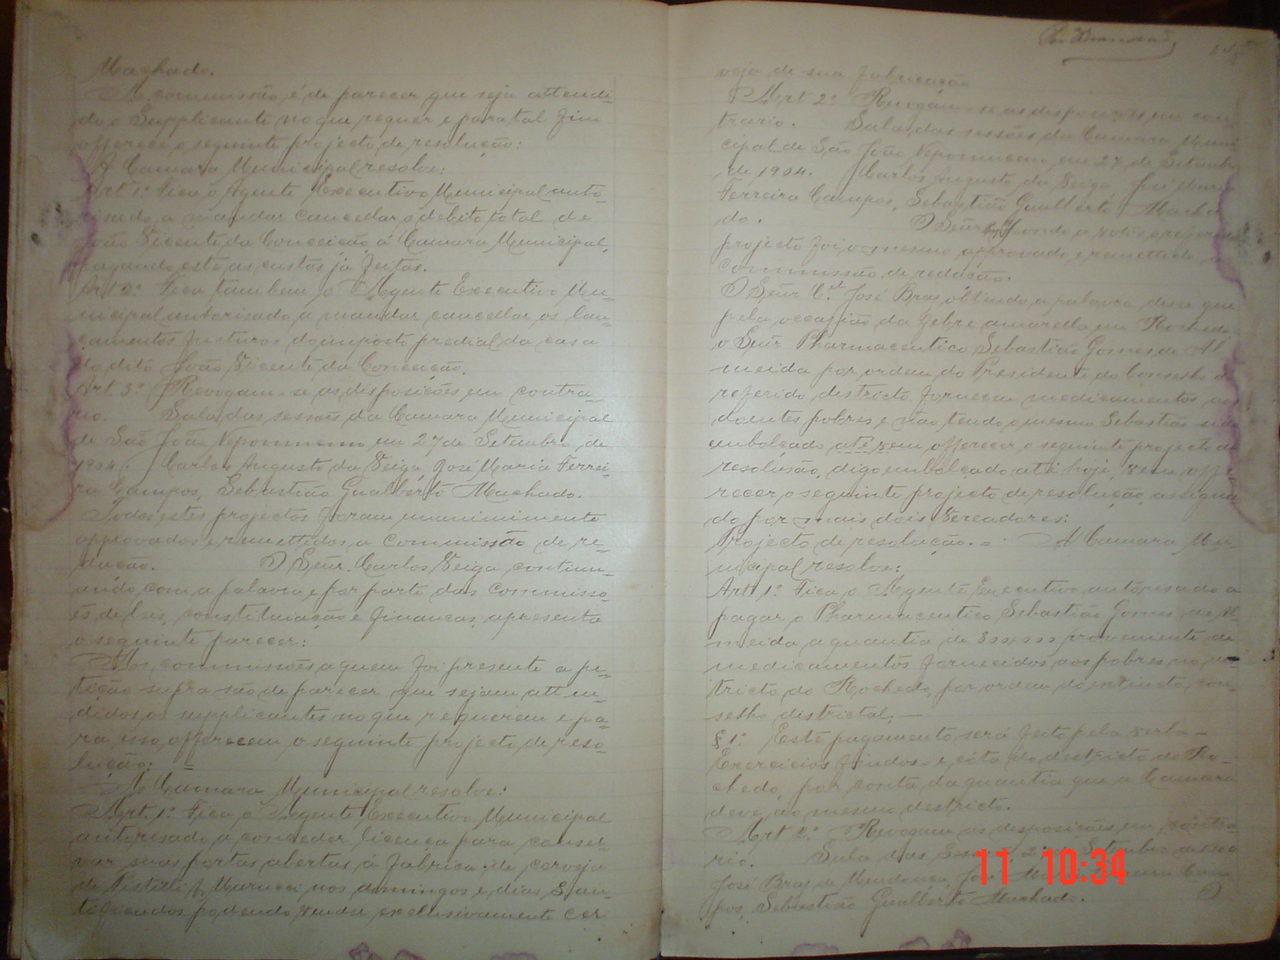 Machado.
A commissão é de parecer que seja attendi-
do o Supplicante no que requer e para tal fim
offerece o seguinte projecto de resolução:
A Camara Municipal resolve:
Art 1º Fica o Agente Executivo Municipal auto-
risado a mandar cancellar o debito total de
João Vicente da Conceição á Camara Municipal,
pagando este as custas já feitas.
Art 2º Fica tambem o Agente Executivo Mu-
nicipal autorisado a mandar cancellar os lan-
çamentos futuros do imposto predial da casa
do dito João Vicente da Conceição.
Art 3º Revogam-se as disposições em contra-
rio. Sala das sessões da Camara Municipal
de São João Nepomuceno em 27 de Setembro de
1904. Carlos Augusto da Veiga, José Maria Ferrei-
ra Campos, Sebastião Gualberto Machado.
Todos estes projectos foram unanimimente
approvados e remettidos a commissão de re-
dacção. O Sñr. Carlos Veiga continu-
ando com a palavra e por parte das commisso-
ẽs de leis, constituição e finanças, apresenta
o seguinte parecer:
As commissões a quem foi presente a pe-
tição supra são de parecer que sejam atten-
didos os supplicantes no que requerem e pa-
ra isso offerecem o seguinte projecto de reso-
lução: =
A Camara Municipal resolve:
Art. 1º Fica o Agente Executivo Municipal
autorisado a conceder licença para conser-
var suas portas abertas á fabrica de cerveja
de & Marucci nos domingos e dias San-
tificados podendo vender exclusivamente cer
veja de sua fabricação
Art 2º Revogam-se as disposições em con-
trario. Sala das sessões da Camara Muni
cipal de São João Nepomuceno, em 27 de Setembro
de 1904. Carlos Augusto da Veiga José Maria
Ferreira Campos, Sebastião Gualberto Macha
do. O Sñr. a votos o
projecto foi o mesmo approvado e remettido a
commissão de redacção.
O Sñr Cel. José Braz, obtendo a palavra disse que
pela occasião da febre amarella em Rochedo
o Sñr Pharmaceutico Sebastião Gomes de Al
meida por ordem do Presidente do Conselho do
referido districto forneceu medicamentos aos
doentes pobres e não tendo o mesmo Sebastião sido
embolçado até vem offerecer o seguinte projecto de
resolusão, digo embolçado até hoje, vem offe
recer o seguinte projecto de resolucção assigna
do por mais dois Vereadores:
Projecto de resolução. = A Camara Mu
nicipal resolve:
Art 1º Fica o Agente Executivo autorisado a
pagar o Pharmaceutico Sebastião Gomes de Al
meida a quantia de proveniente de
medicamentos fornecidos aos pobres no dis
tricto do Rochedo, por ordem do extincto con-
selho districtal. —
§ 1º Este pagamento será feito pela verba —
Exercicios findos — e cóta do destricto do Ro-
chedo, por conta da quantia que a Camara
deve ao mesmo destricto.
Art 2º Revogam as disposições em contra-
rio. Sala das Setembro
José Braz de Mendonça, Cam
pos, Sebastião Gualberto Machado. O
11 10:34